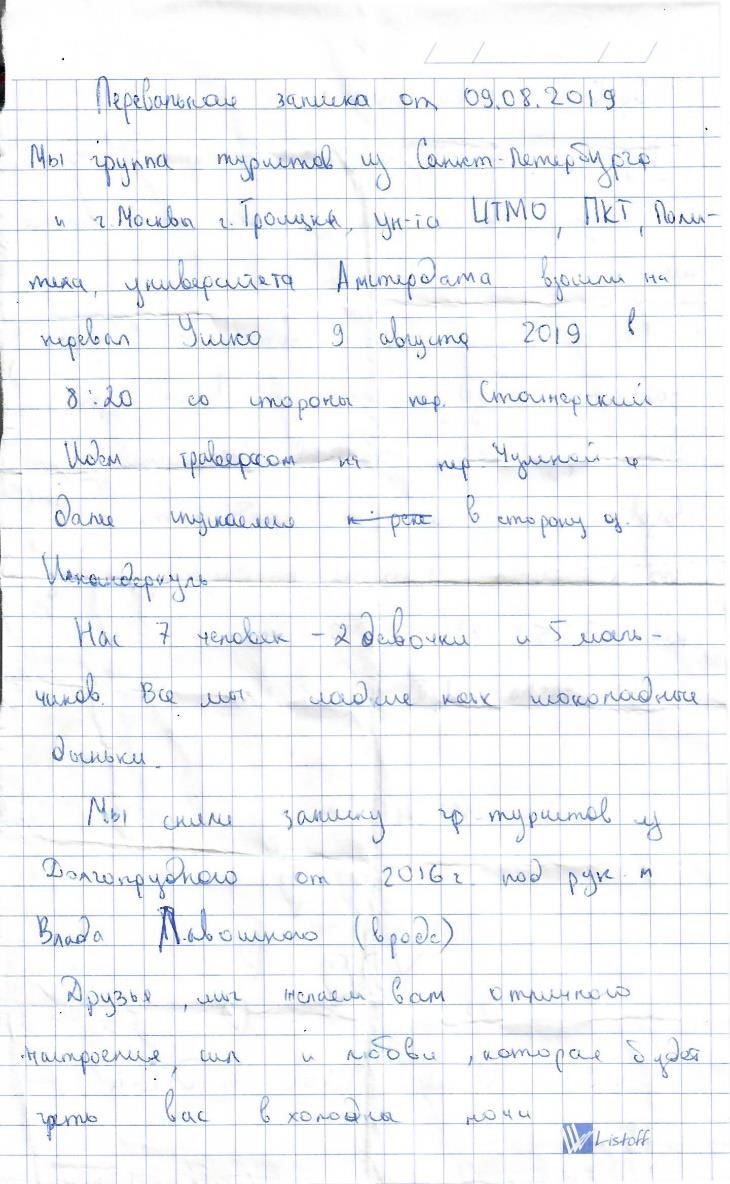 Перевальная записка от 09.08.2019
Мы группа туристов из Санкт-Петербурга
и г.Москвы г.Троицка, ун-та ИТМО, ПКТ, Поли-
теха, университета Амстердама взошли на
перевал 9 августа 2019 в
8:20 со стороны пер.
Идем траверсом на пер. Чумной и
далее спускаемся к реке в сторону оз.
Искандеркуль
Нас 7 человек - 2 девочки и 5 маль-
чиков. Все мы сладкие как шоколадные
дыньки.
Мы сняли записку гр. туристов из
Долгопрудного от 2016г под рук-м
Влада (вроде)
Друзья, мы желаем вам отличного
настроения, сил и любови, которая будет
греть вас в холодны ночи
Listoff